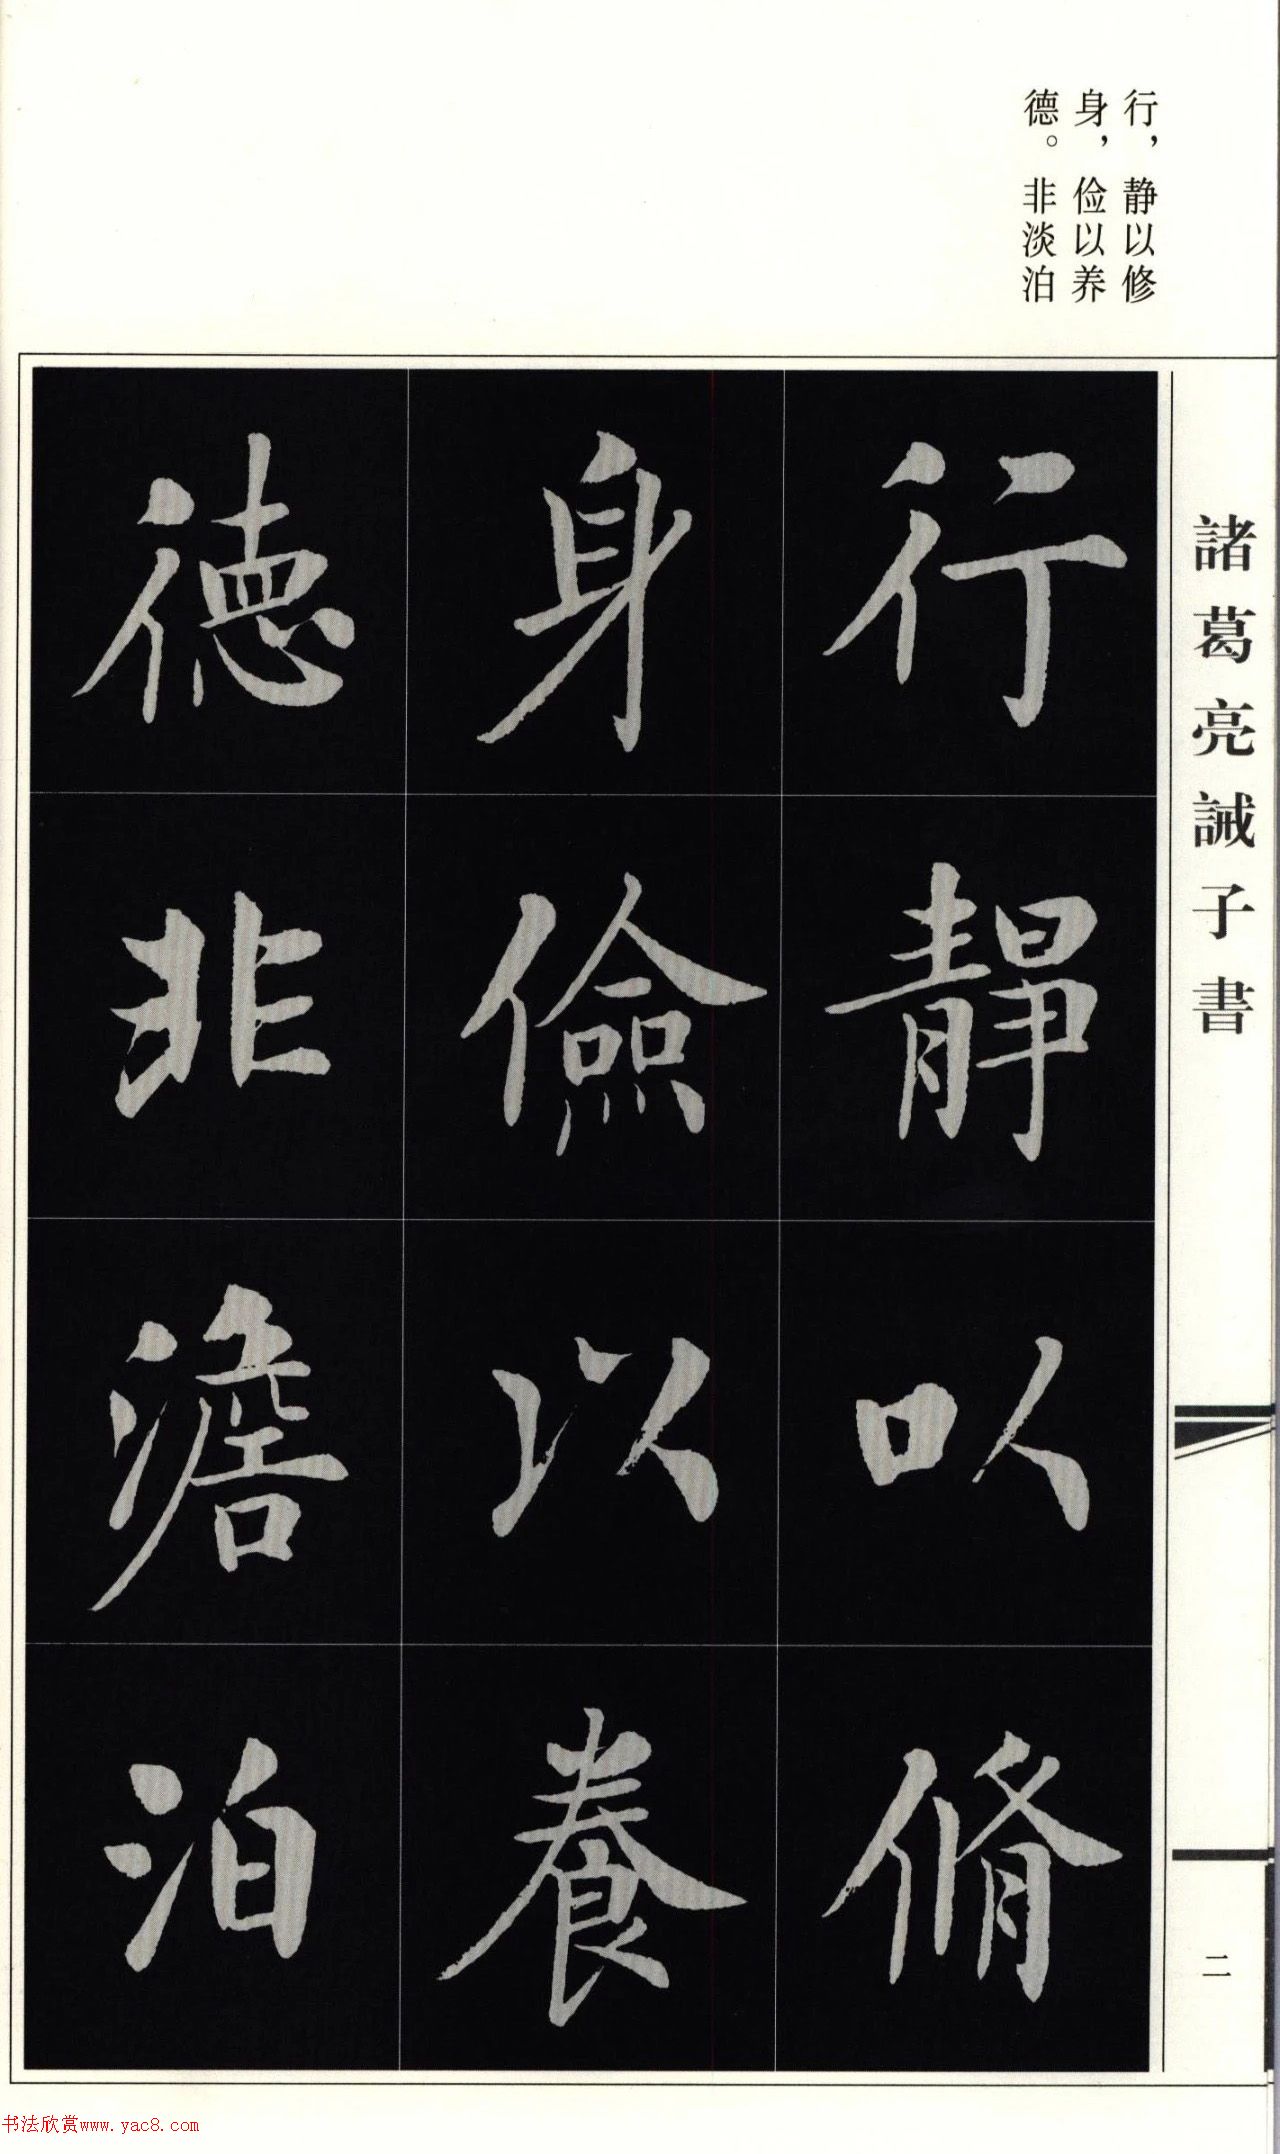 行，静以修
身，俭以养
德。非淡泊
諸葛亮誡子書
二
行靜以脩
身儉以養
德非澹泊
书法欣赏www.yac8.com